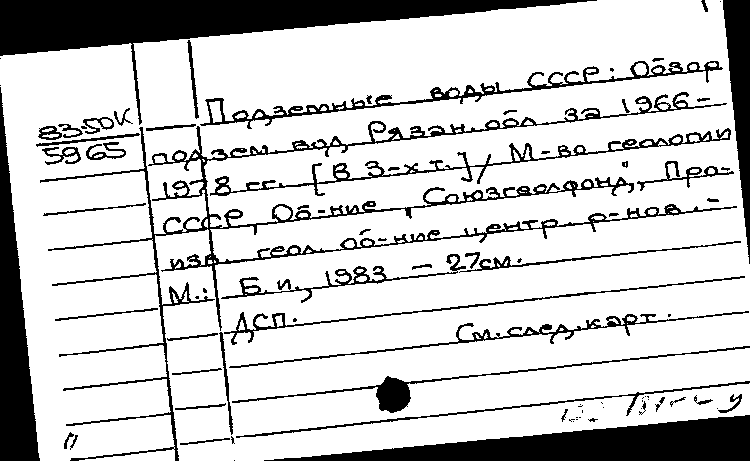 83-50К
5965
Подземные воды СССР: Обзор
подзем. вод Рязан. обл за 1966-
1978 гг. [В 3-х т.] / М-во геологии
СССР, Об-ние "Союзгеолфонд", Про-
изв. геол. об-ние центр. р-нов. -
М.: Б. и., 1983 - 27см.
ДСП.
См. след. карт.